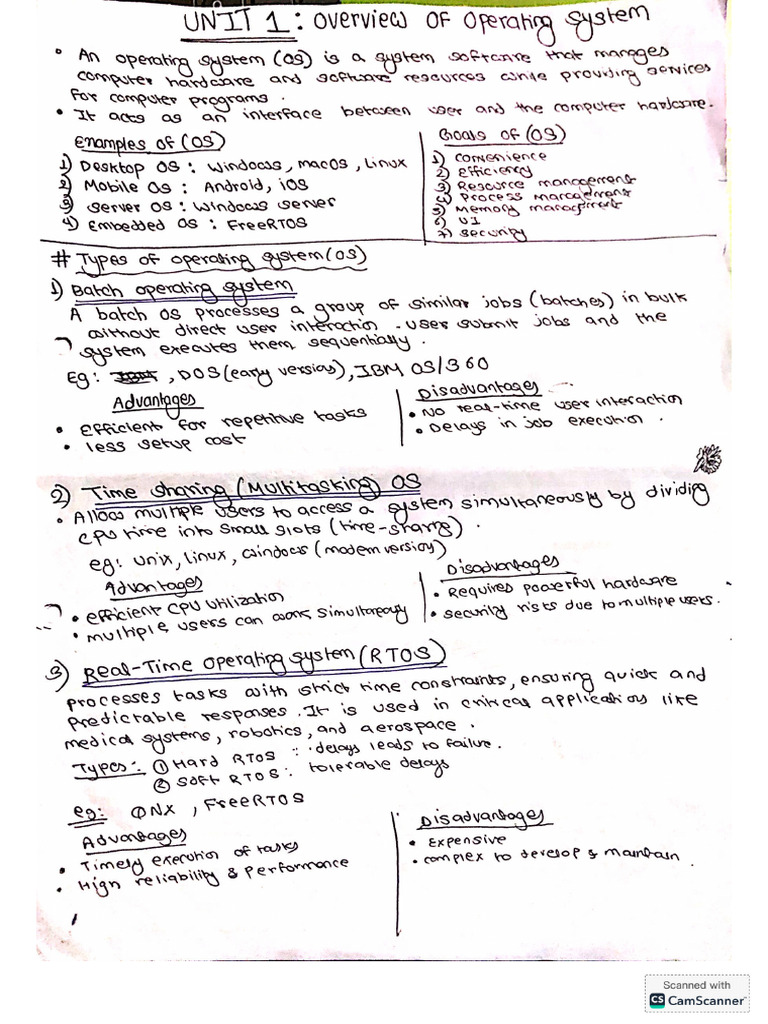 UNIT 1 : Overview OF Operating System
• An operating system (OS) is a system software that manages
computer hardware and software resources while providing services
for computer programs.
• It acts as an interface between user and the computer hardware.
Examples of (OS)
1) Desktop OS : Windows, macOS, Linux
2) Mobile OS : Android, iOS
3) Server OS : Windows Server
4) Embedded OS : FreeRTOS
Goals of (OS)
1) Convenience
2) Efficiency
3) Resource management
4) Process management
5) Memory management
6) UI
7) Security
# Types of operating system (OS)
1) Batch operating system
A batch OS processes a group of similar jobs (batches) in bulk
without direct user interaction . User submit jobs and the
system executes them sequentially.
Eg: , DOS (early version), IBM OS/360
Advantages
• Efficient for repetitive tasks
• less setup cost
Disadvantages
• No real-time user interaction
• Delays in job execution .
2) Time sharing (Multitasking) OS
• Allow multiple users to access a system simultaneously by dividing
CPU time into small slots (time-sharing) .
eg: Unix, Linux, Windows (modern version)
Advantages
• efficient CPU utilization
• multiple users can work simultaneously
Disadvantages
• Requires powerful hardware
• security risks due to multiple users.
3) Real-Time operating system (RTOS)
processes tasks with strict time constraints, ensuring quick and
predictable responses. It is used in critical applications like
medical systems, robotics, and aerospace .
Types :- ① Hard RTOS : delays leads to failure.
② Soft RTOS : tolerable delays
eg: QNX , FreeRTOS
Advantages
• Timely execution of tasks
• High reliability & performance
Disadvantages
• Expensive
• complex to develop & maintain .
Scanned with
CS CamScanner